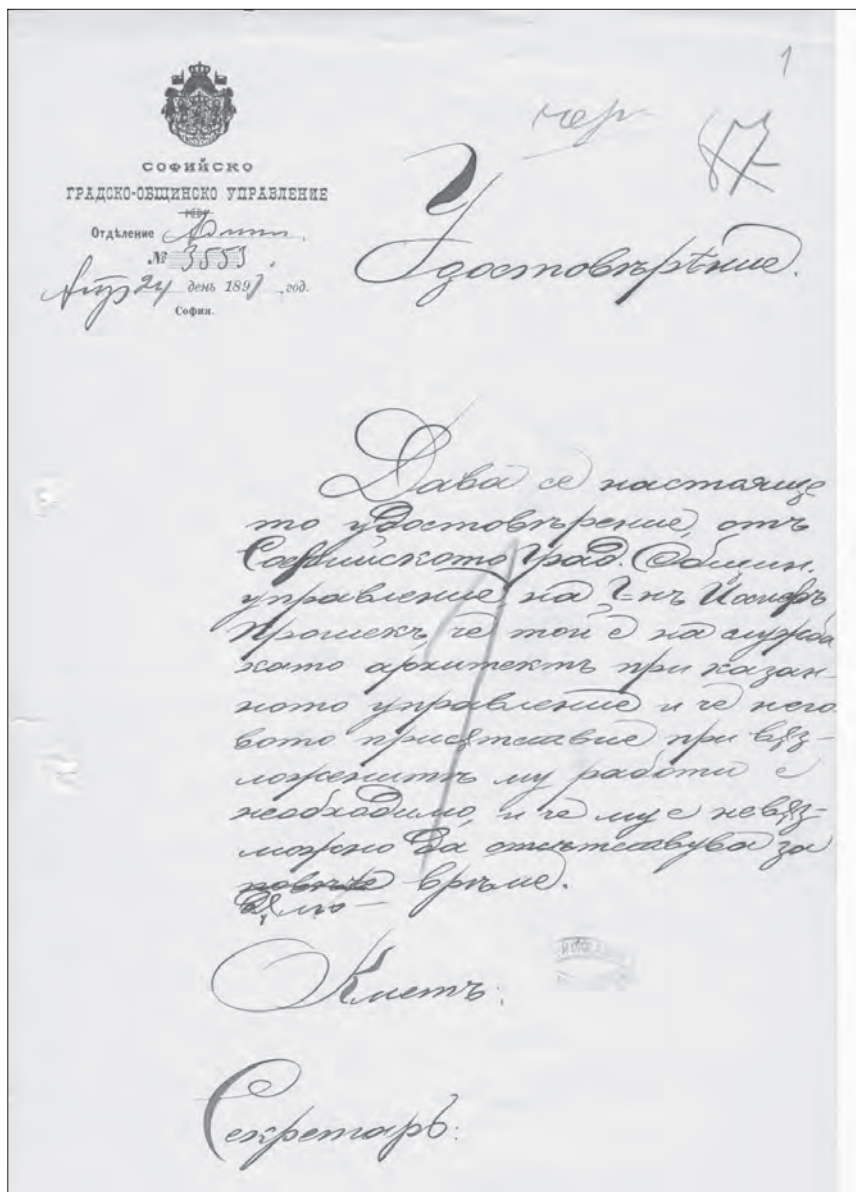 1
чер
87
СОФИЙСКО
ГРАДСКО-ОБЩИНСКО УПРАВЛЕНИЕ
Отдѣление
№ 3553.
Апр 24 день 1897 год.
София.
Удостовѣрѣние.
Дава се настояще
то удостовѣрение, отъ
Софийското Град. Общин.
управление, на Г-нъ Йосифъ
Прошекъ, че той е на служба
като архитектъ при казан-
ното управление и че него
вото присѫтствие при вѫз-
ложенитѣ му работи е
необходимо, и че му е невѫз-
можно да отсѫтствува за
повѣче врѣме.
Кметъ:
Секретарь: